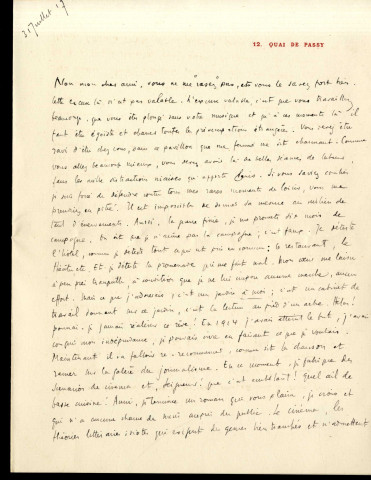 21 Juillet 17
12. QUAI DE PASSY
Non mon cher ami, vous ne me "rasez" pas, et vous le savez fort bien.
Cette excuse là n'est pas valable. L'excuse valable, c'est que vous travaillez
beaucoup, que vous êtes plongé dans votre musique et qu'à ces moments là il
faut être égoïste et chasser toute préoccupation étrangère. Vous devez être
ravi d'être chez vous, dans ce pavillon que ma femme me dit charmant. Comme
vous allez beaucoup mieux, vous devez avoir là de belles heures de labeur,
sans les mille distractions niaises qu'apporte Paris. Si vous saviez combien
je suis forcé de défendre contre tous mes rares moments de loisir, vous me
prendriez en pitié. Il est impossible de mener sa maison au milieu de
tant d'événements. Aussi, la paix finie, je me promets dix mois de
campagne. On dit que je n'aime pas la campagne; c'est faux. Je déteste
l'hôtel, comme je déteste tout ce qui est en commun: le restaurant, le
théâtre, etc. Et je déteste la promenade qui me fait mal. Mon cœur me laisse
à peu près tranquille, à condition que je ne lui impose aucune marche, aucun
effort. Mais ce que j'adorerais, c'est un jardin à moi; c'est un cabinet de
travail donnant sur ce jardin, c'est la lecture au pied d'un arbre. Hélas!
pourrai-je jamais réaliser ce rêve! En 1914 j'avais atteint le but, j'avais
conquis mon indépendance, je pouvais vivre en faisant ce que je voulais.
Maintenant il va falloir re-recommencer, comme dit la chanson et
ramer sur la galère du journalisme. En ce moment, je fabrique des
scénarios de cinéma et, Seigneur! que c'est embêtant! Quel air de
basse cuisine! Aussi, je termine un roman qui vous plaira, je crois et
qui n'a aucune chance de succès auprès du public. Le cinéma, les
théories littéraires idiotes qui exigent des genres bien tranchés et n'admettent